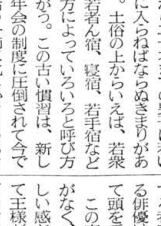 に入らねばならぬきまりがあ
。土俗の上からいえば、若衆
若者ん宿、寝宿、若王宿など
方によっていろいろと呼び方
がう。この古い慣習は、新し
年会の制度に圧倒されて今で
る俳優
て頭を
この
がなく、
しい感
て王様